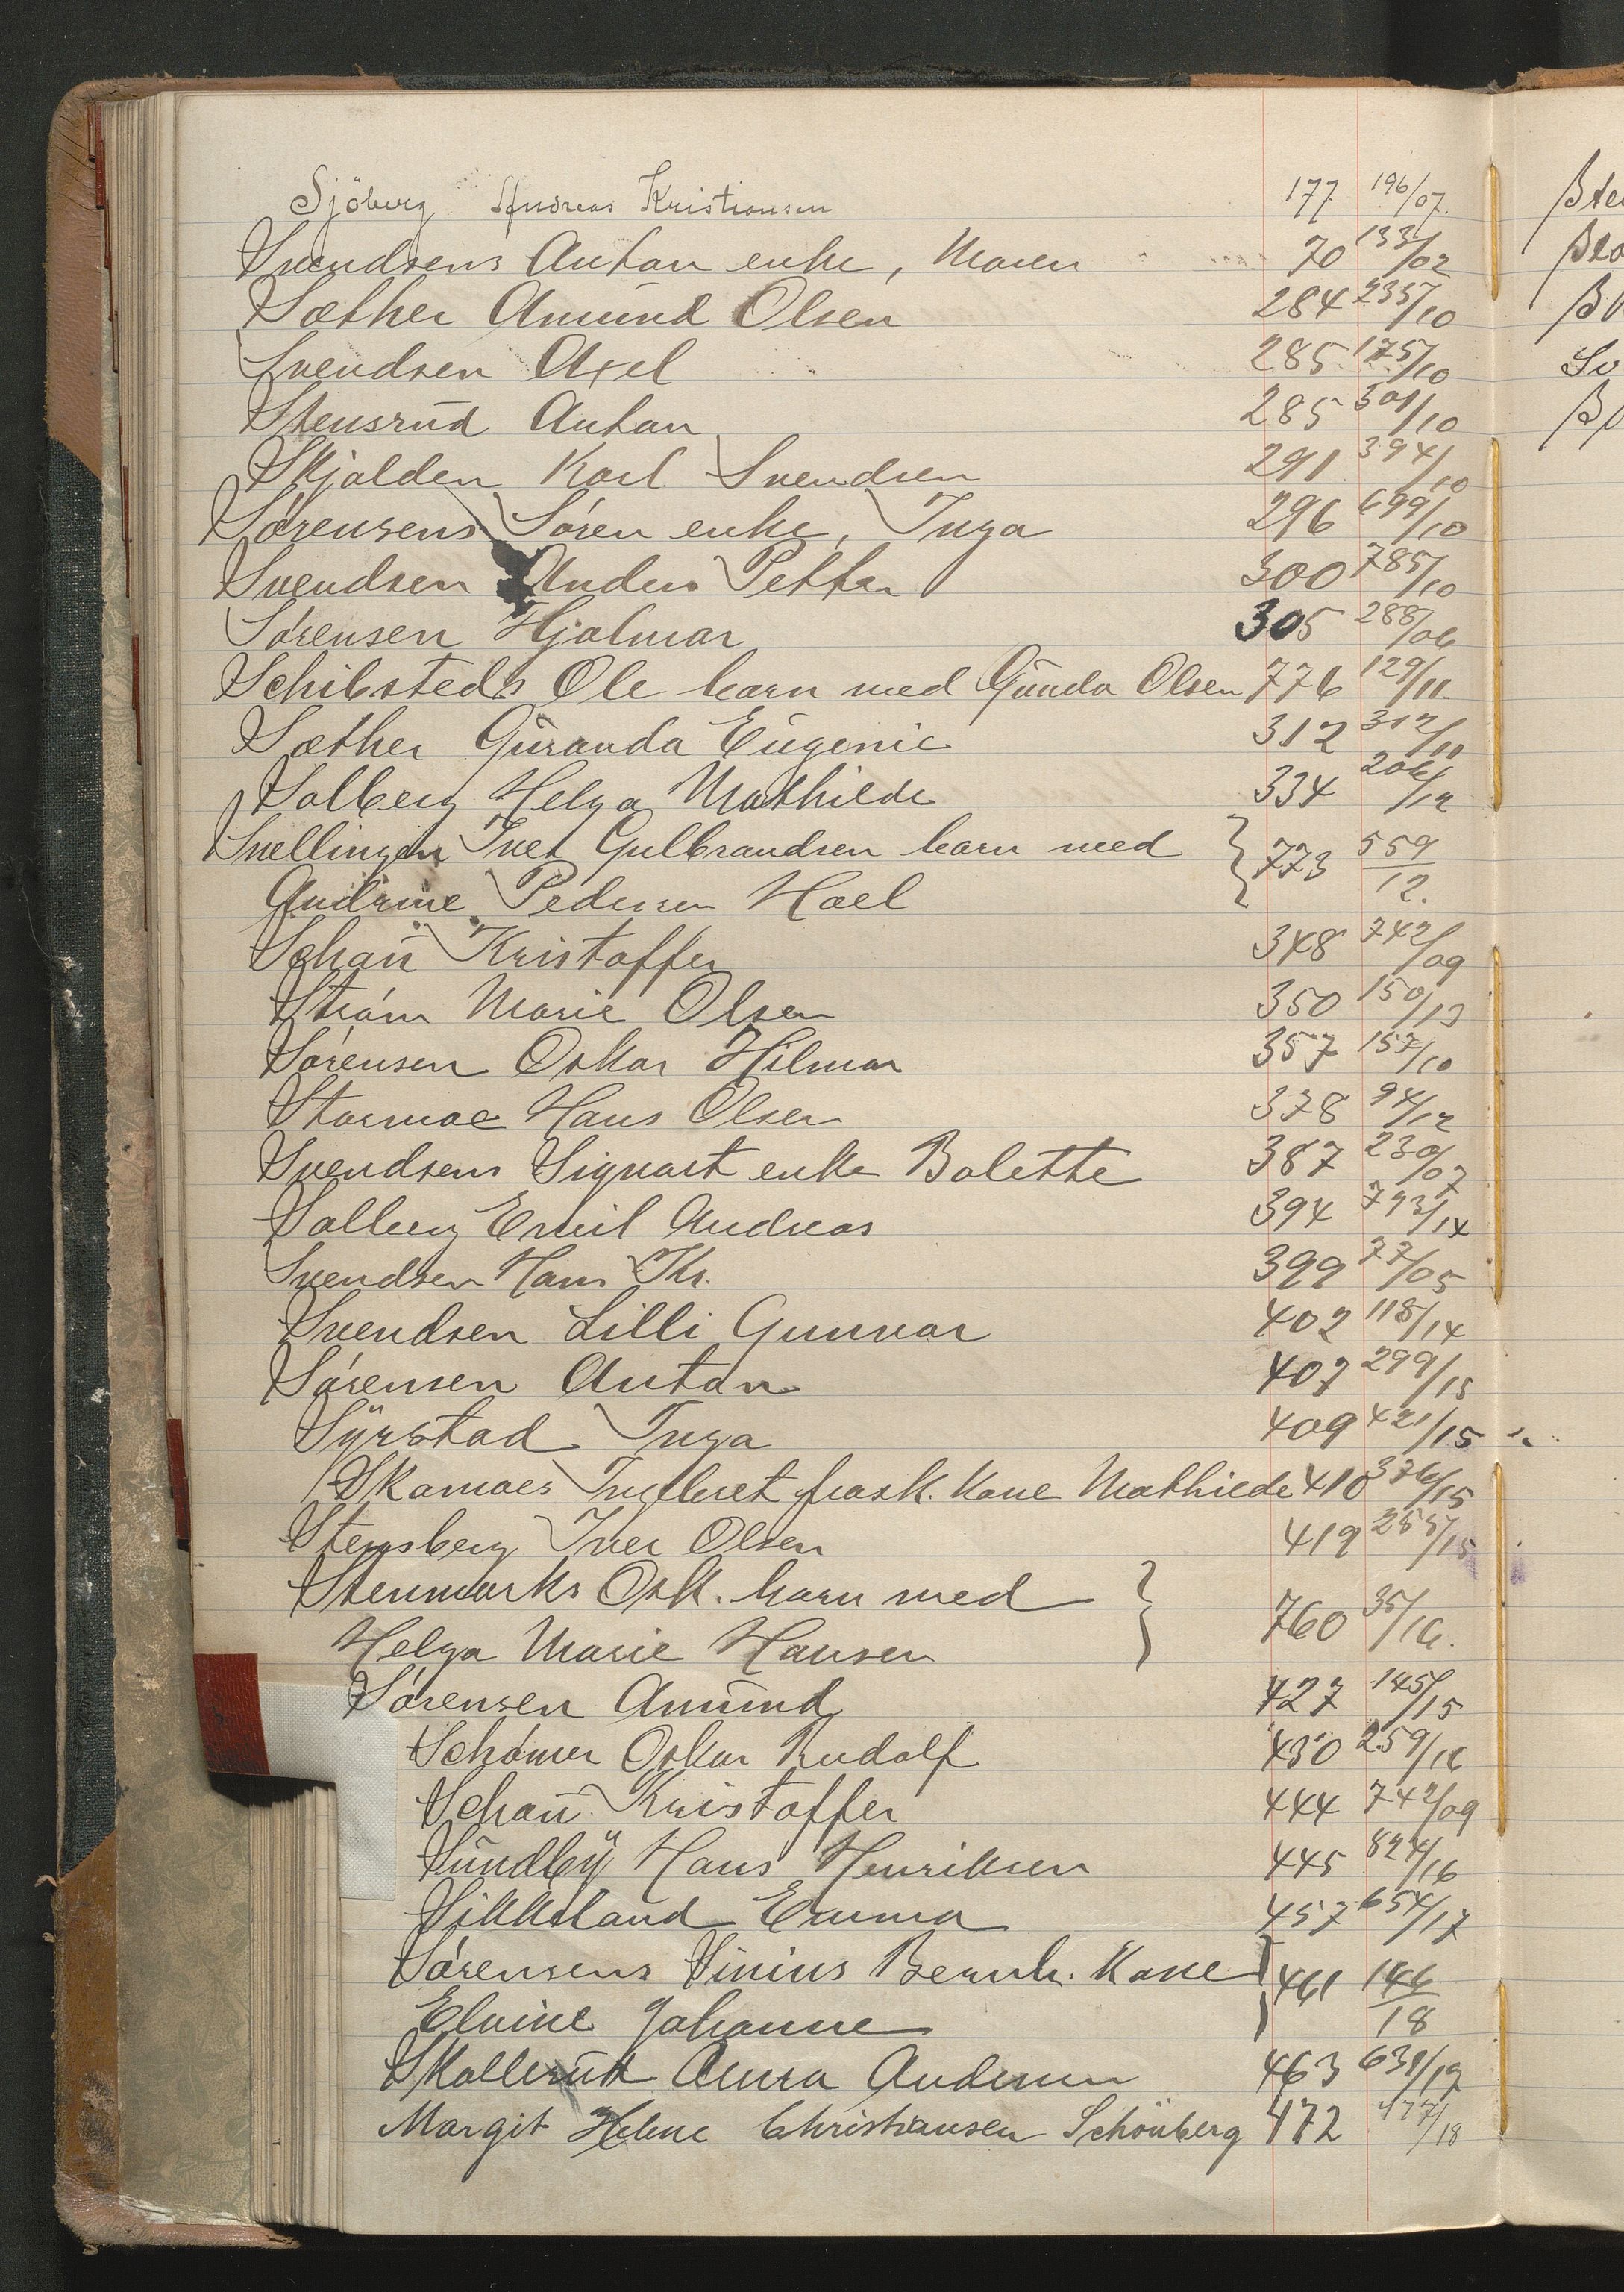 Sjöberg Andreas Kristiansen 177 196/07.
Svendsens Anton enke, Maren 70 133/02
Sæther Amund Olsen 284 235/10
Svendsen Axel 285 175/10
Stensrud Anton 285 301/10
Skjolden Karl Svendsen 291 394/10
Sørensens Søren enke, Inga 296 699/10
Svendsen Anders Petter 300 785/10
Sørensen Hjalmar 305 288/06
Schibsteds Ole barn med Gunda Olsen 776 129/11.
Sæther Guranda Eugenie 312 312/11
Solberg Helga Mathilde 334 206/12
Snellingen Iver Gulbrandsen barn med } 773 559/12.
Andrine Pedersen Hoel
Schau Kristoffer 348 742/09
Strøm Marie Olsen 350 150/13
Sørensen Oskar Hilmar 357 157/10
Stormoe Hans Olsen 378 94/12
Svendsens Sigvart enke Bolette 387 230/07
Solberg Emil Andreas 394 793/14
Svendsen Hans Kr. 399 77/05
Svendsen Lilli Gunvor 402 118/14
Sørensen Anton 407 299/15
Syrstad Inga 409 421/15
Skamoes frask. Kone Mathilde 410 376/15
Stensberg Iver Olsen 419 255/15
Stenmarks Osk. barn med } 760 35/16.
Helga Marie Hansen
Sørensen Amund 427 145/15
Schømer Oskar Rudolf 430 259/16
Schau Kristoffer 444 742/09
Sundby Hans Henriksen 445 824/16
Sikkeland Emma 457 654/17
Sørensens Sinius Bernh. Kone } 461 146/18
Elvine Johanne
Skollerud Anna Andersen 463 631/19
Margit Helene Christiansen Schönberg 472 477/18
Sv